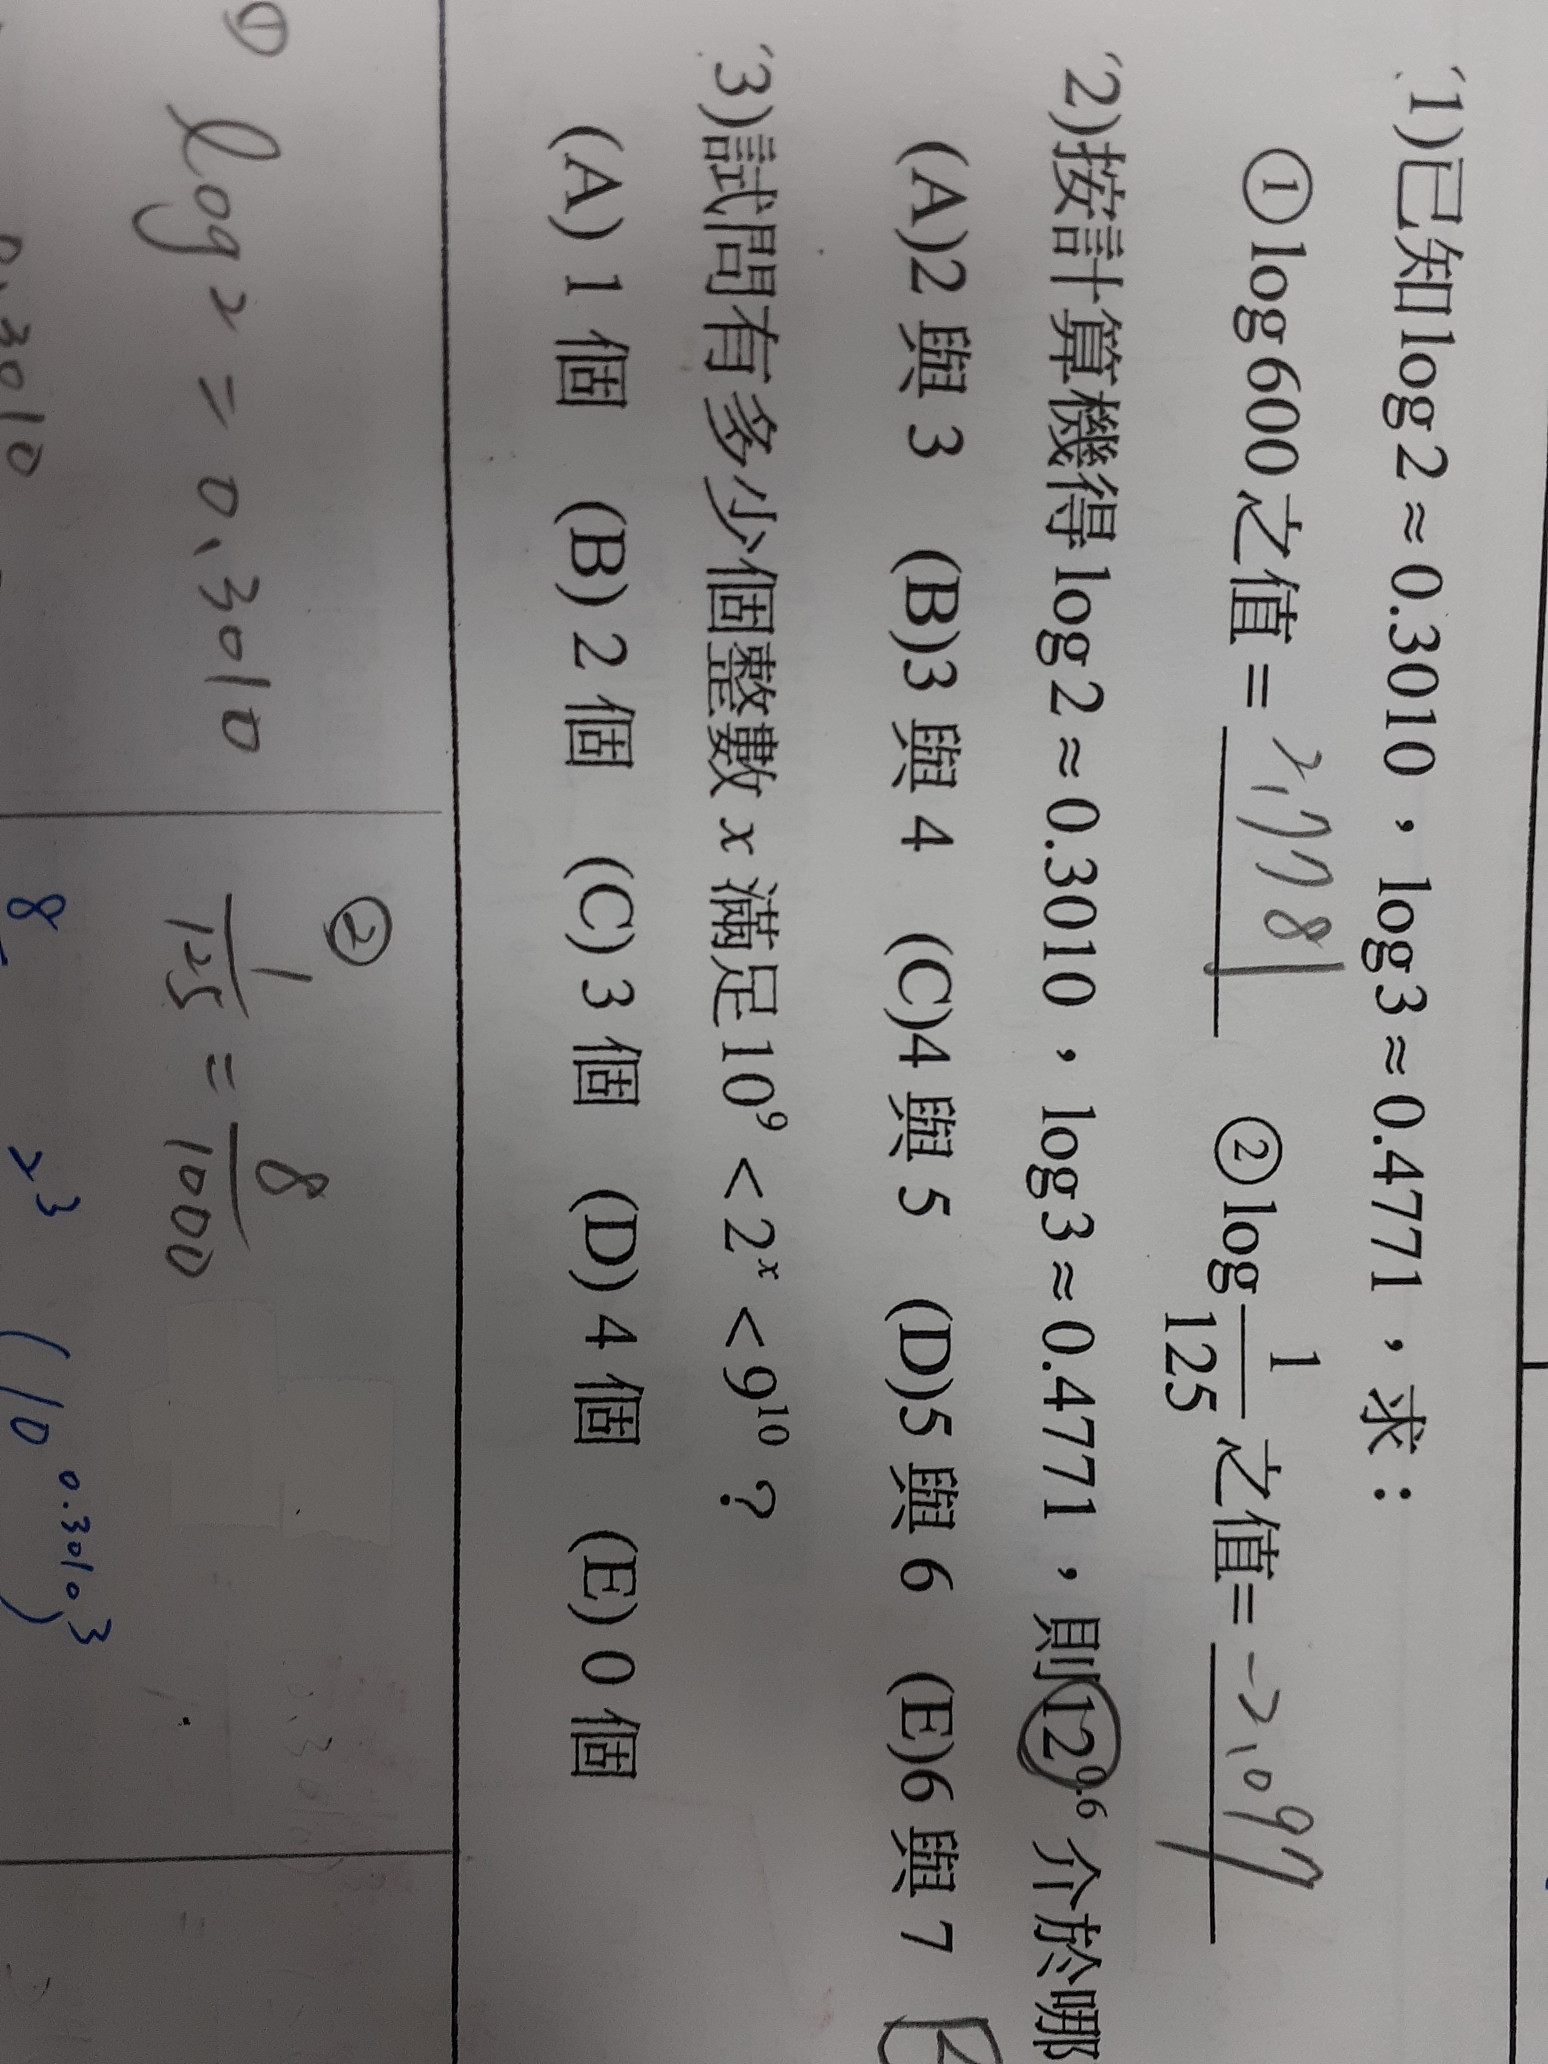 (1)已知 log 2 ≈ 0.3010，log 3 ≈ 0.4771，求：
① log 600 之值 = 2.7781 ② log 1/125 之值= -2.097
(2)按計算機得 log 2 ≈ 0.3010，log 3 ≈ 0.4771，則 12^0.6 介於哪
(A)2 與 3 (B)3 與 4 (C)4 與 5 (D)5 與 6 (E)6 與 7
(3)試問有多少個整數 x 滿足 10^9 < 2^x < 9^10？
(A) 1 個 (B) 2 個 (C) 3 個 (D) 4 個 (E) 0 個
① log 2 = 0.3010
0.3010
②
1/125 = 8/1000
8 2^3 (10^0.3010)^3